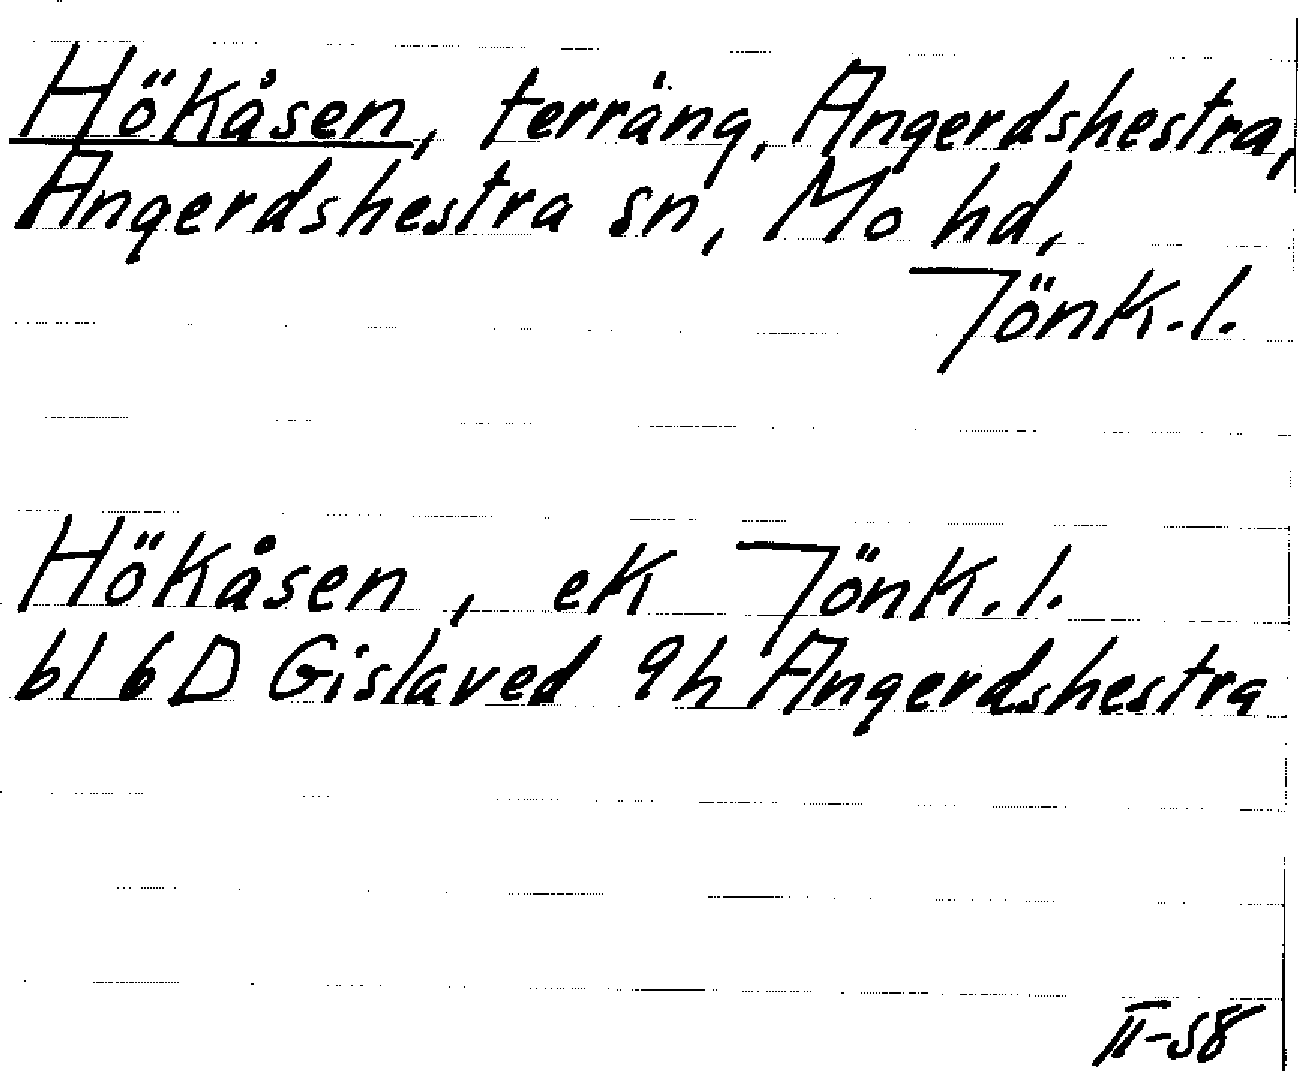 Hökåsen, terräng, Angerdshestra,
Angerdshestra sn, Mo hd,
Jönk.l.
Hökåsen, ek Jönk.l.
bl 6D Gislaved 9h Angerdshestra
II-58